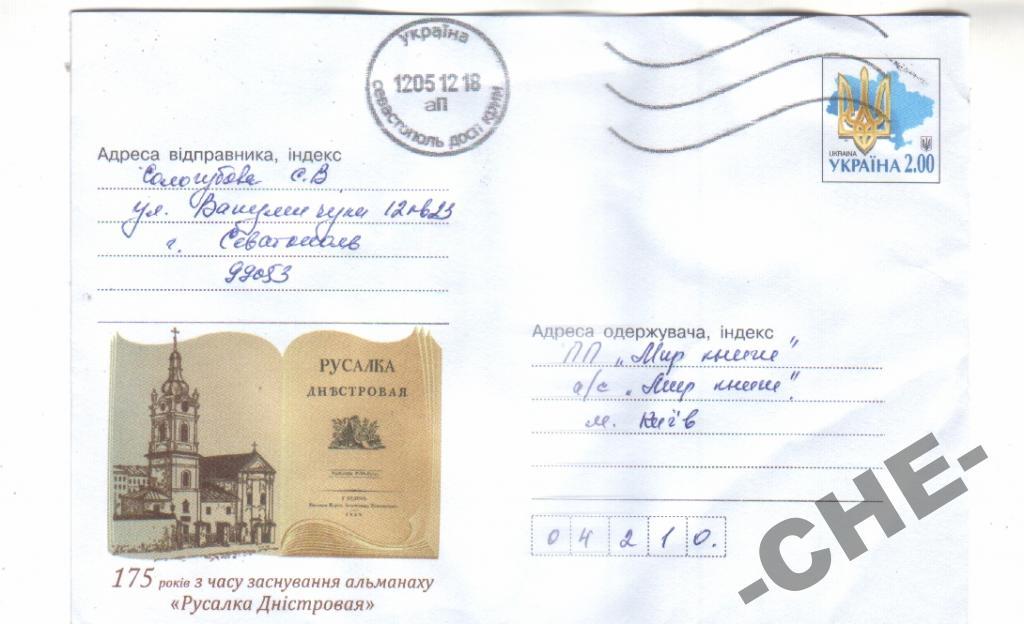 україна
1205 12 18
аП
севастополь досп крим
UKRAINA
УКРАЇНА 2.00
Адреса відправника, індекс
С.В
ул. 12 кв 23
г. Севатополь
99053
РУСАЛКА
ДНѢСТРОВАЯ
175 років з часу заснування альманаху
«Русалка Дністровая»
Адреса одержувача, індекс
ПП „Мир книги"
а/с „Мир книги".
м. Київ
04210.
-CHE-